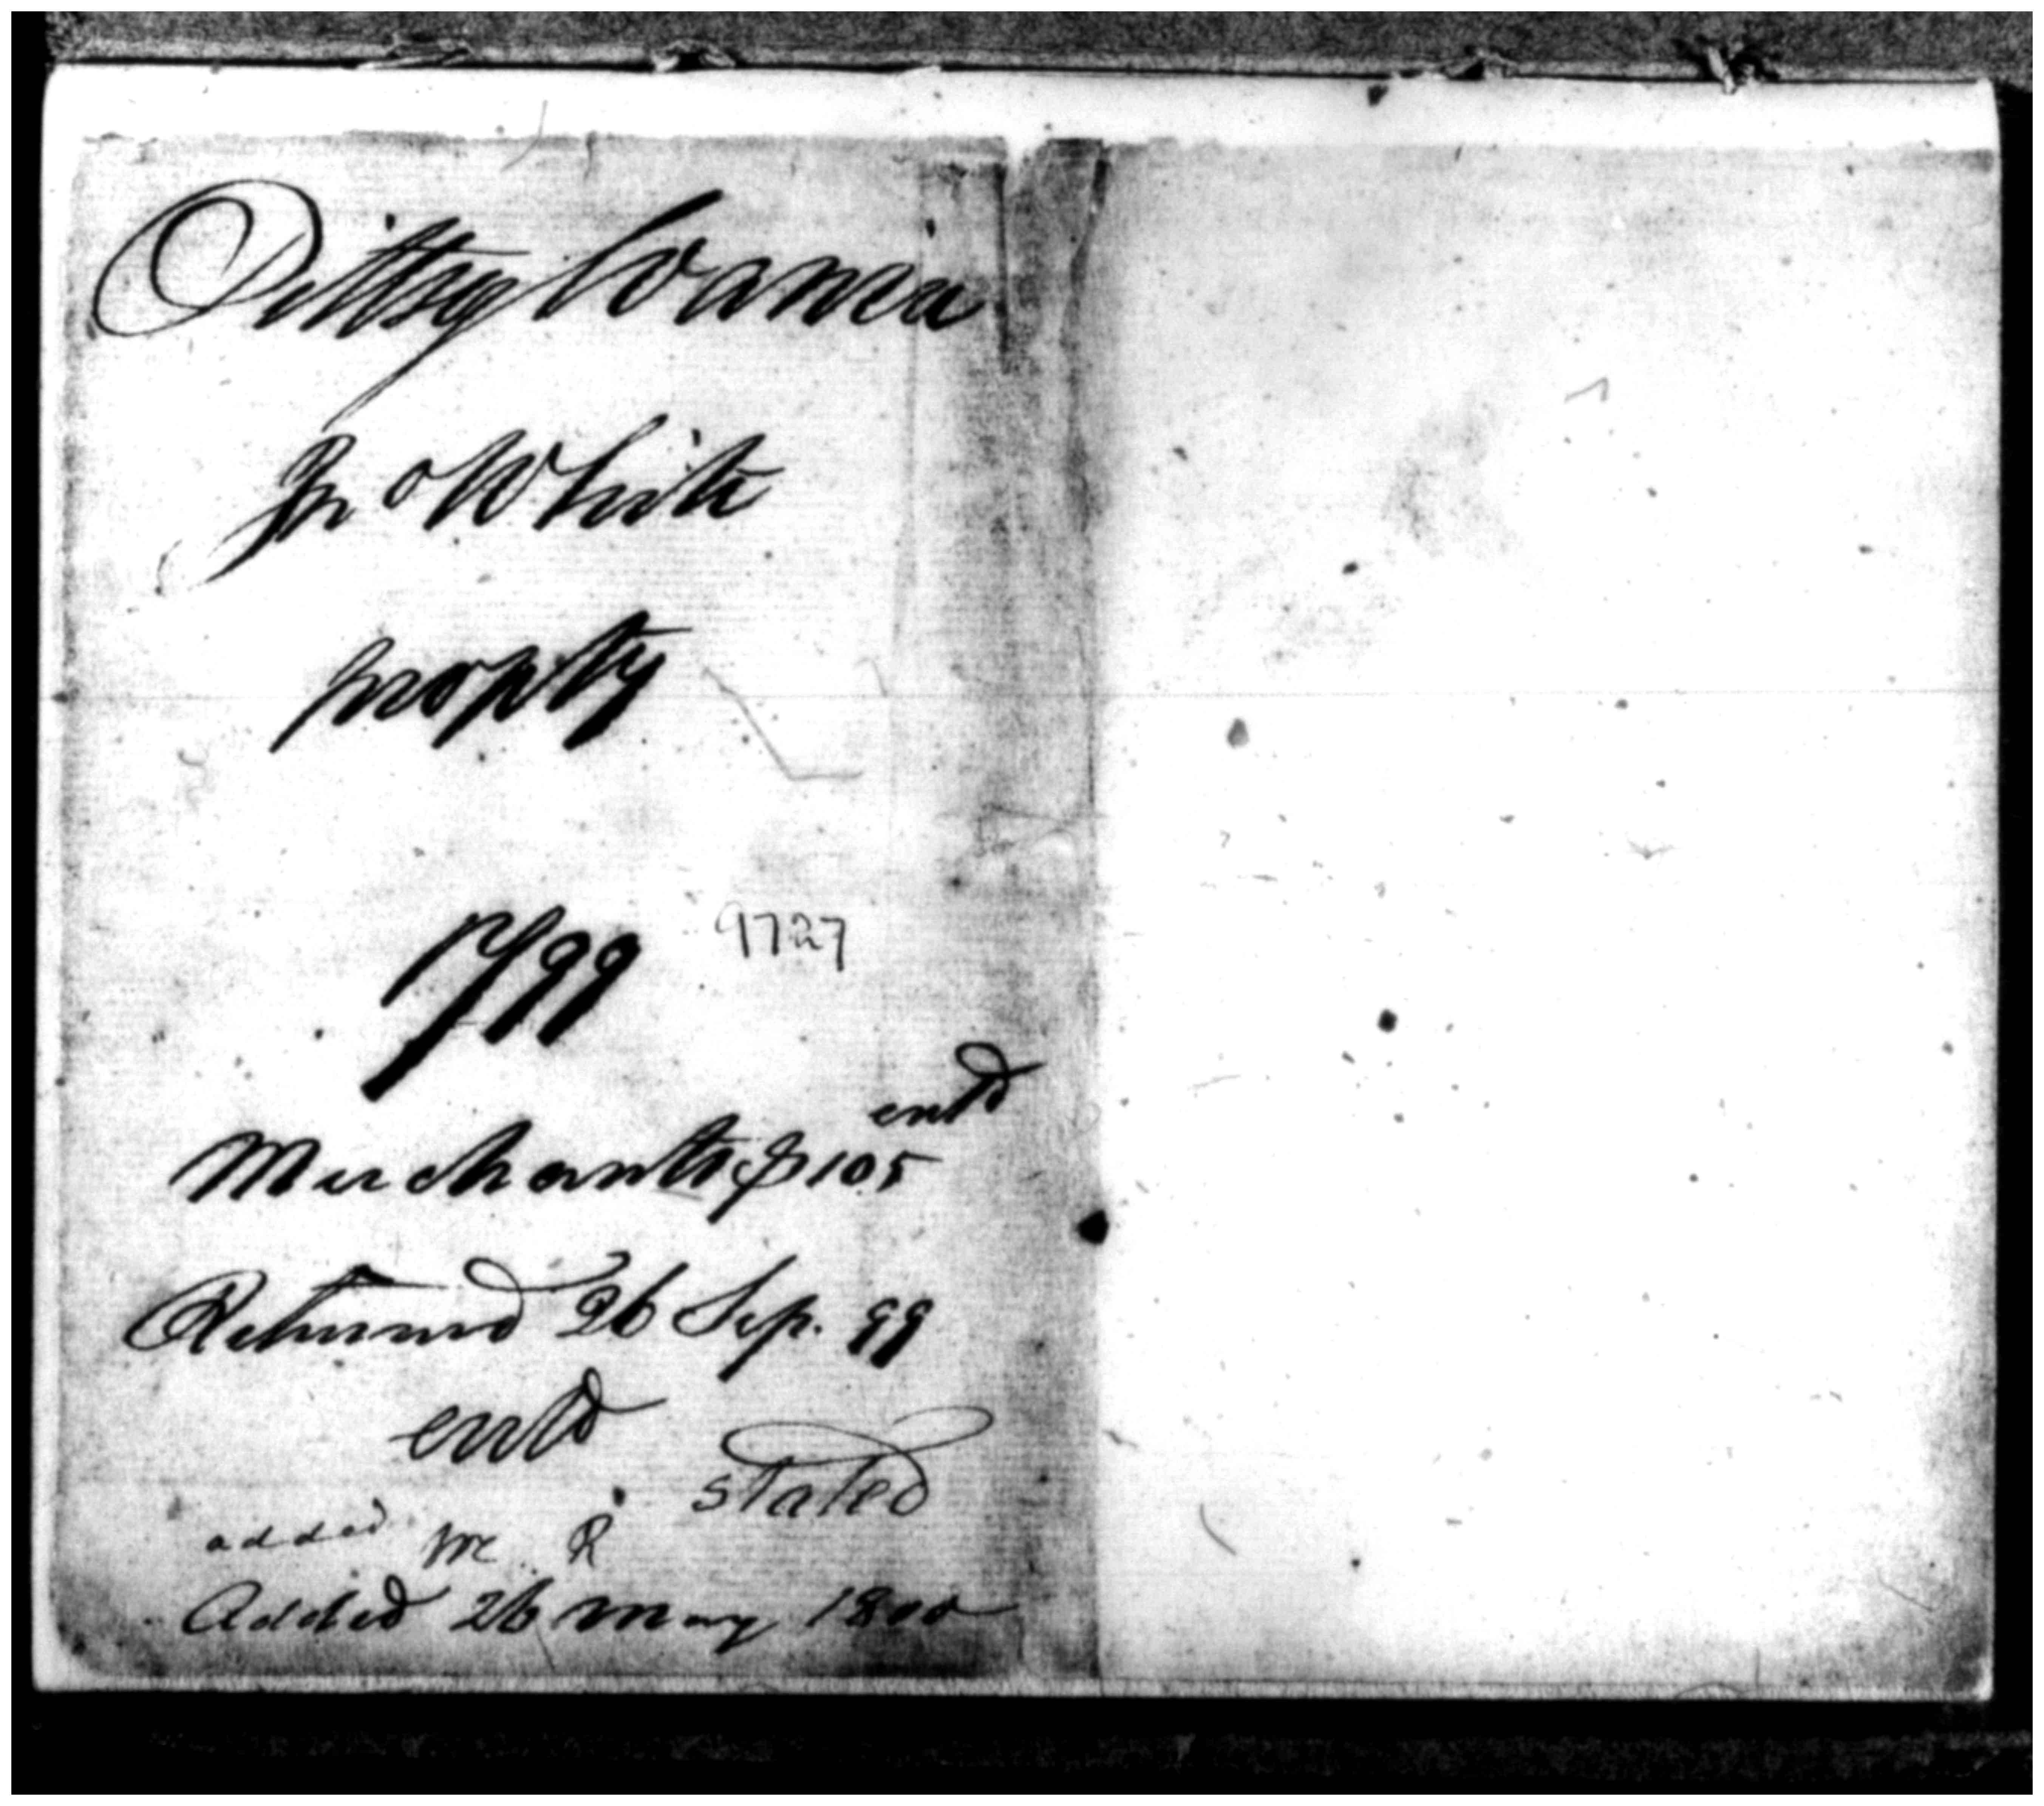 Pittsylvania
Jno White
propty
1799 9727
entd
Merchants $105
Returned 26 Sep. 99
entd
stated
added
Added 26 May 1800